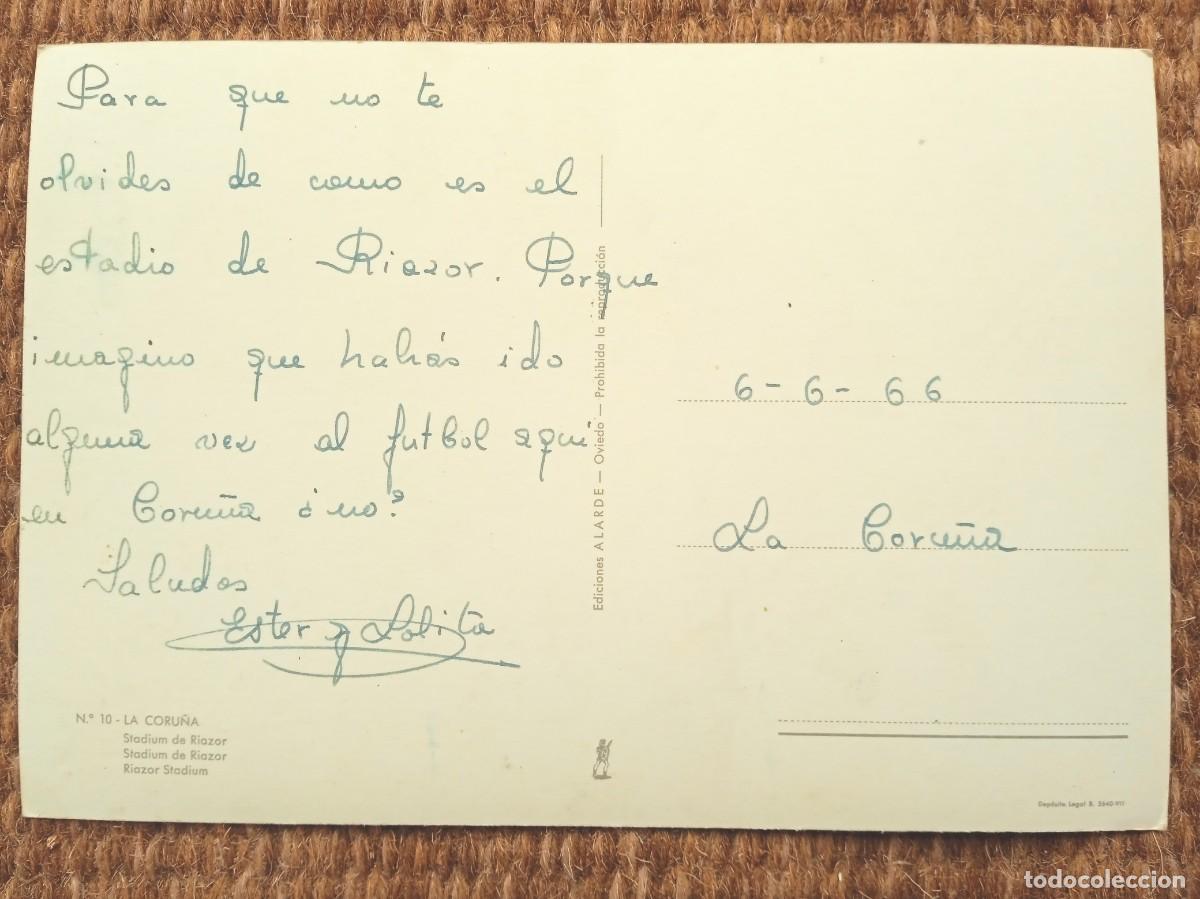 Para que no te
olvides de como es el
estadio de Riazor. Porque
imagino que habrás ido
alguna vez al futbol aquí
en Coruña ¿no?
Saludos
Ester y Lolita
N.º 10 - LA CORUÑA
Stadium de Riazor
Stadium de Riazor
Riazor Stadium
Ediciones ALARDE — Oviedo — Prohibida la reproducción
6 - 6 - 66
La Coruña
Depósito Legal B. 5640-VII
todocoleccion